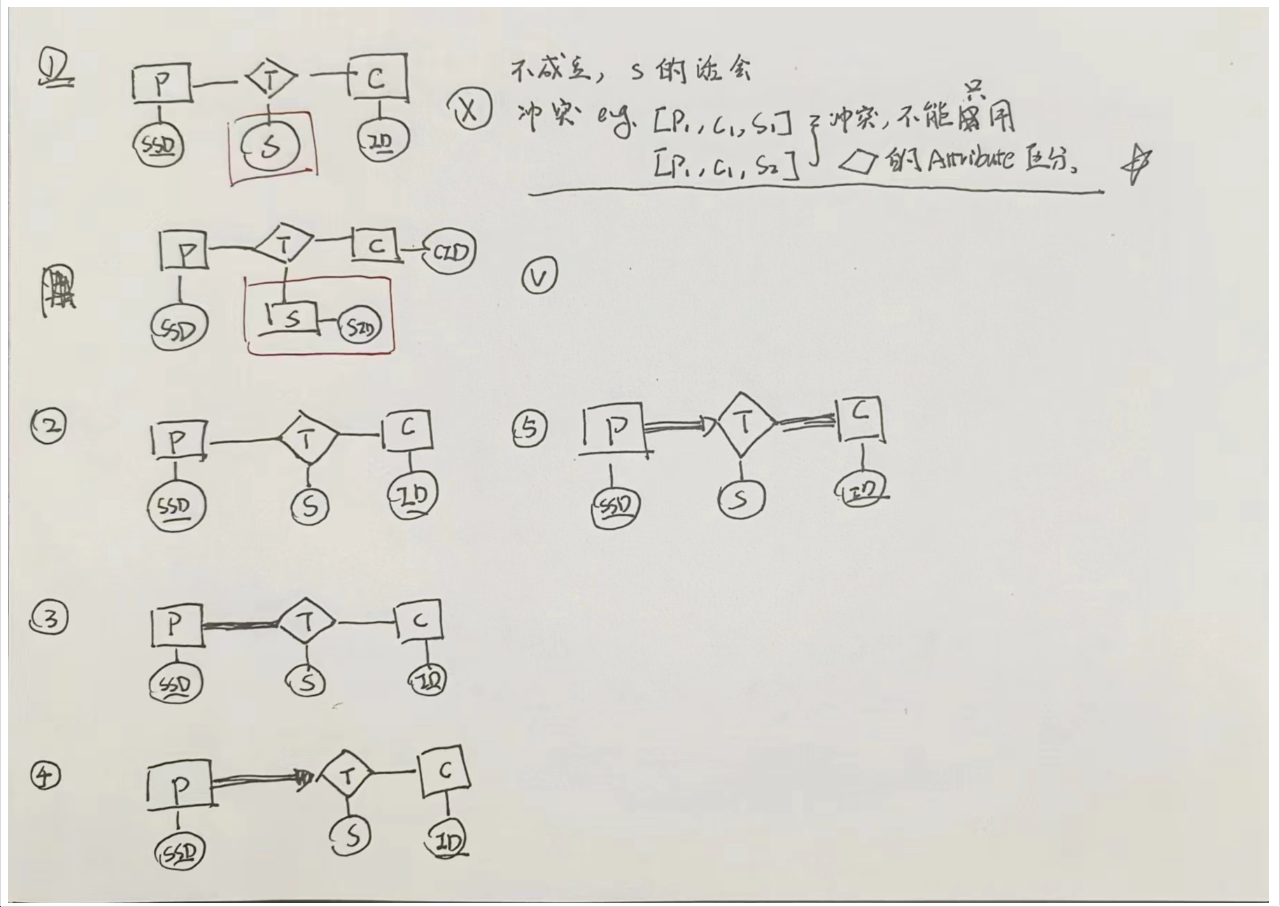 ①
P T C
SSD S ID
X
不成立, S 的话会
冲突 e.g. [P₁, C₁, S₁] 冲突, 不能只用
[P₁, C₁, S₂] 的 Attribute 区分。
P T C CID
SSD S SID
V
②
P T C
SSD S ID
⑤
P T C
SSD S ID
③
P T C
SSD S ID
④
P T C
SSD S ID